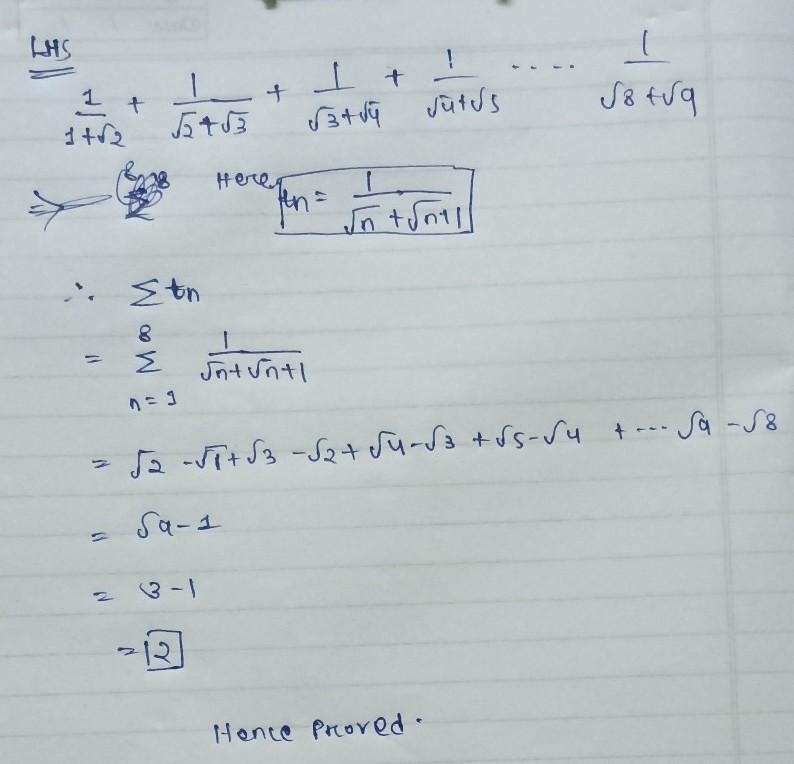 LHS
1/(1+√2) + 1/(√2+√3) + 1/(√3+√4) + 1/(√4+√5) ..... 1/(√8+√9)
⇒ Here, tn = 1/(√n + √n+1)
∴ Σ tn
= 8 Σ n=1 1/(√n+√n+1)
= √2 -√1+√3 -√2+√4-√3 +√5-√4 + ... √9 -√8
= √9-1
= 3-1
= 2
Hence Proved.